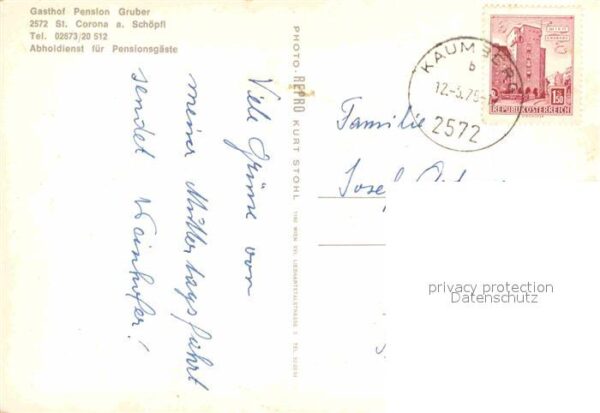 Gasthof Pension Gruber
2572 St. Corona a. Schöpfl
Tel. 02673/20 512
Abholdienst für Pensionsgäste
Viele Grüße von
meiner Muttertagsfahrt
sendet Weinhofer!
PHOTO-REPRO KURT STOHL
KAUMBERG
b
12.-5.75
2572
1.50
REPUBLIK ÖSTERREICH
Familie
Josef
privacy protection
Datenschutz